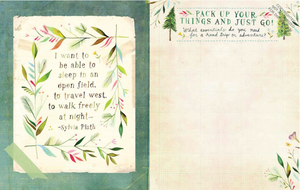 I want to
be able to
sleep in an
open field,
to travel west,
to walk freely
at night—
-Sylvia Plath
PACK UP YOUR
THINGS AND JUST GO!
What essentials do you need
for a road trip or adventure?